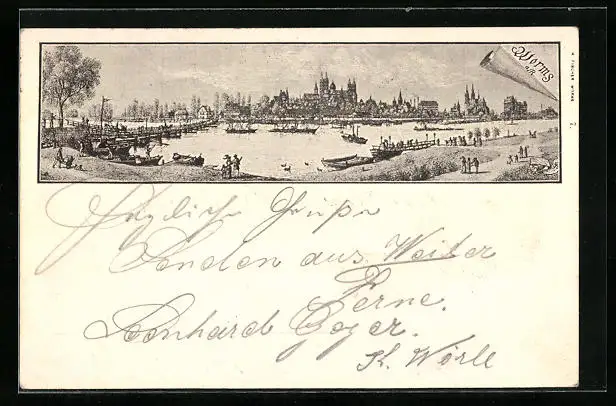 Worms
a/R
Herzliche Grüße
Senden aus Weiter
Ferne.
Leonhard Geyer.
K. Wörle